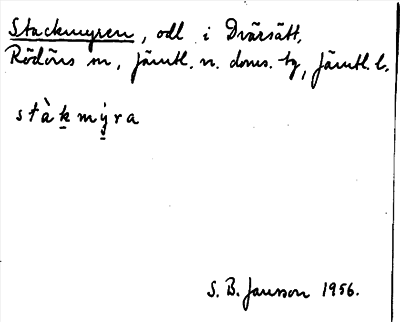 Stackmyren, odl i Dvärsätt,
Rödöns sn, Jämtl. n. doms. tg, Jämtl. l.
stàk̠mỳ̠ra
S. B. Jansson 1956.